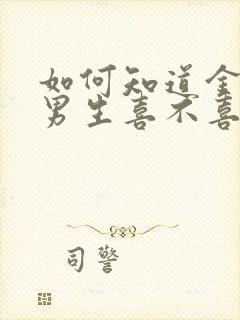 如何知道金
男生喜不喜
司警